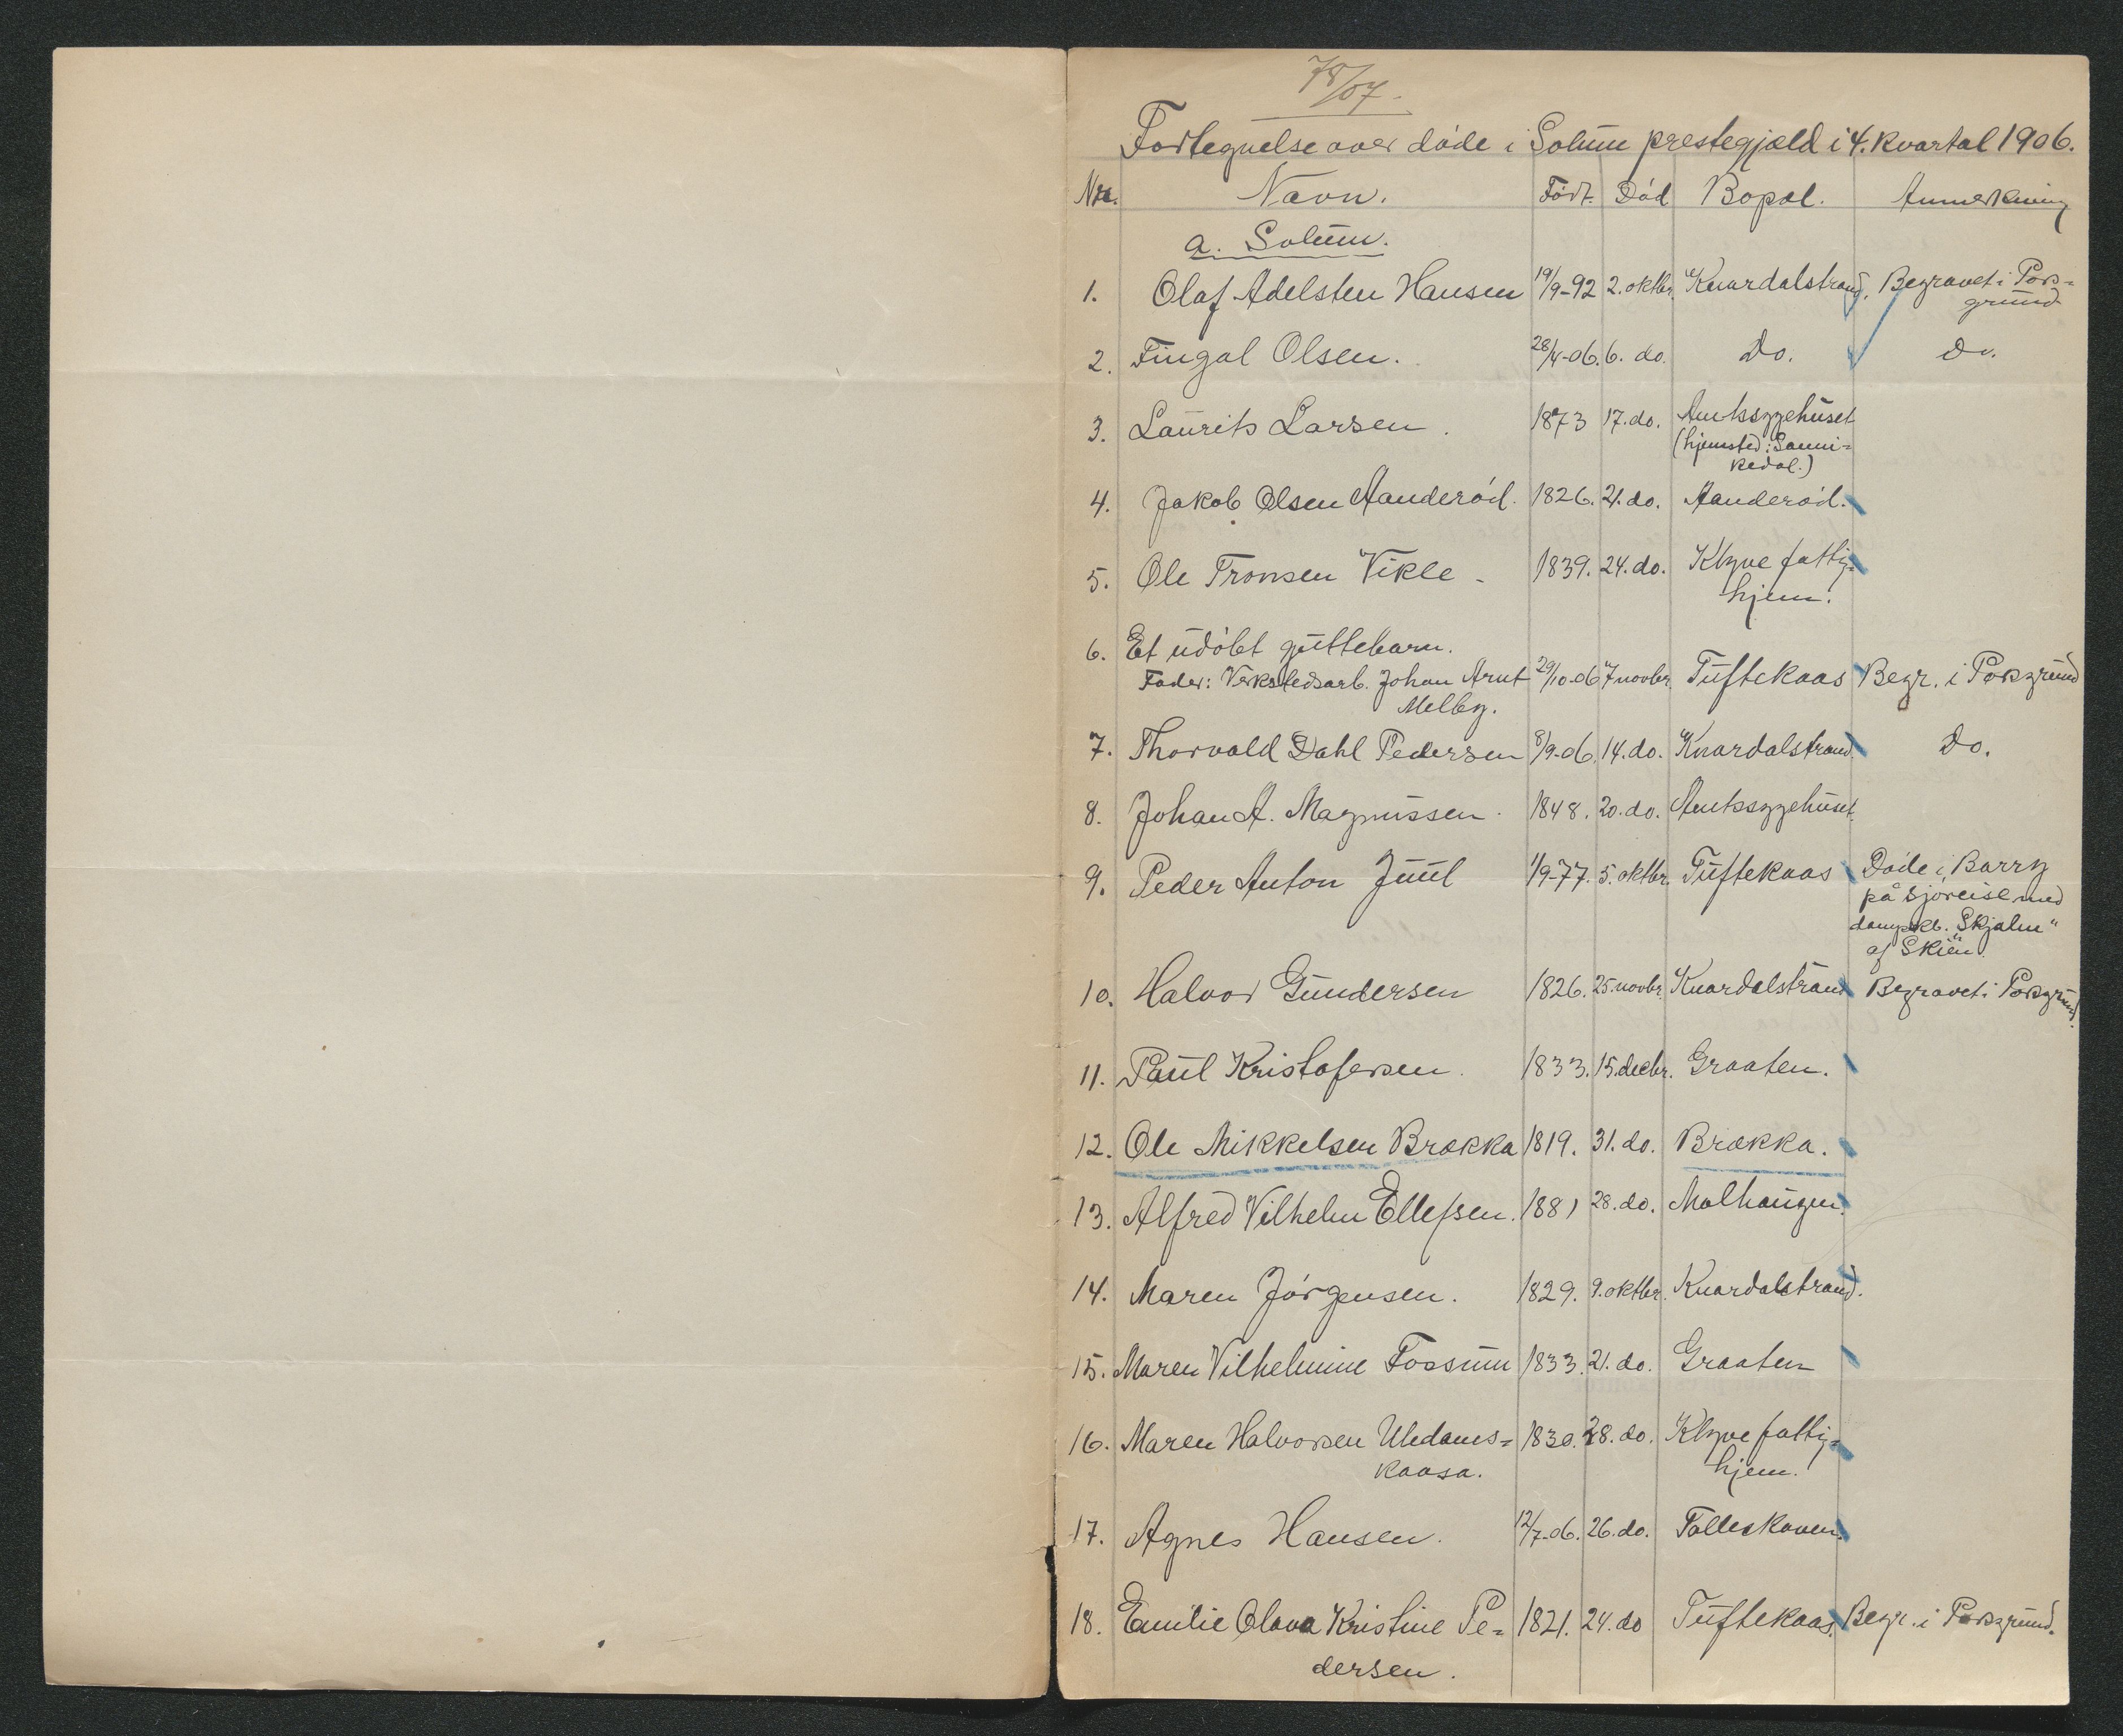 78/07.
Fortegnelse over døde i Solum prestegjæld i 4. kvartal 1906.
Nro. Navn. Født. Død Bopæl. Anmerkning
a. Solum.
1. Olaf Adelsten Hansen 19/9-92 2. oktbr. Knardalstrand. Begravet i Pors=
grund
2. Fingal Olsen. 28/4-06. 6. do. Do. Do.
3. Laurits Larsen. 1873 17. do. Amtssygehuset
(hjemsted: Sanni=
kedal.)
4. Jakob Olsen Aanderød. 1826. 21. do. Aanderød.
5. Ole Tronsen Vikle - 1839. 24. do. Klyve fattig=
hjem.
6. Et udøbt guttebarn.
Fader: Verkstedsarb. Johan Arnt 29/10-06 7 novbr. Tuftekaas Begr. i Porsgrund
Melby.
7. Thorvald Dahl Pedersen 8/9-06. 14. do. Knardalstrand. Do.
8. Johan A. Magnussen. 1848. 20. do. Amtssygehuset.
9. Peder Anton Juul 1/9-77. 5. oktbr. Tuftekaas Døde i Barry
på sjøreise med
dampskb. "Skjalm"
af Skien.
10. Halvor Gundersen 1826. 25 novbr. Knardalstrand Begravet i Porsgrund.
11. Paul Kristofersen. 1833. 15. decbr. Graaten.
12. Ole Mikkelsen Brækka 1819. 31. do. Brækka.
13. Alfred Vilhelm Ellefsen. 1881 28. do. Molhaugen.
14. Maren Jørgensen. 1829. 9. oktbr. Knardalstrand.
15. Maren Vilhelmine Fossum 1833. 21. do. Graaten
16. Maren Halvorsen Uhdams=  1830. 28. do. Klyve fattig=
kaasa. hjem.
17. Agnes Hansen. 12/7-06. 26. do. Tolleskoven.
18. Emilie Olava Kristine Pe= 1821. 24. do Tuftekaas. Begr. i Porsgrund.
dersen.